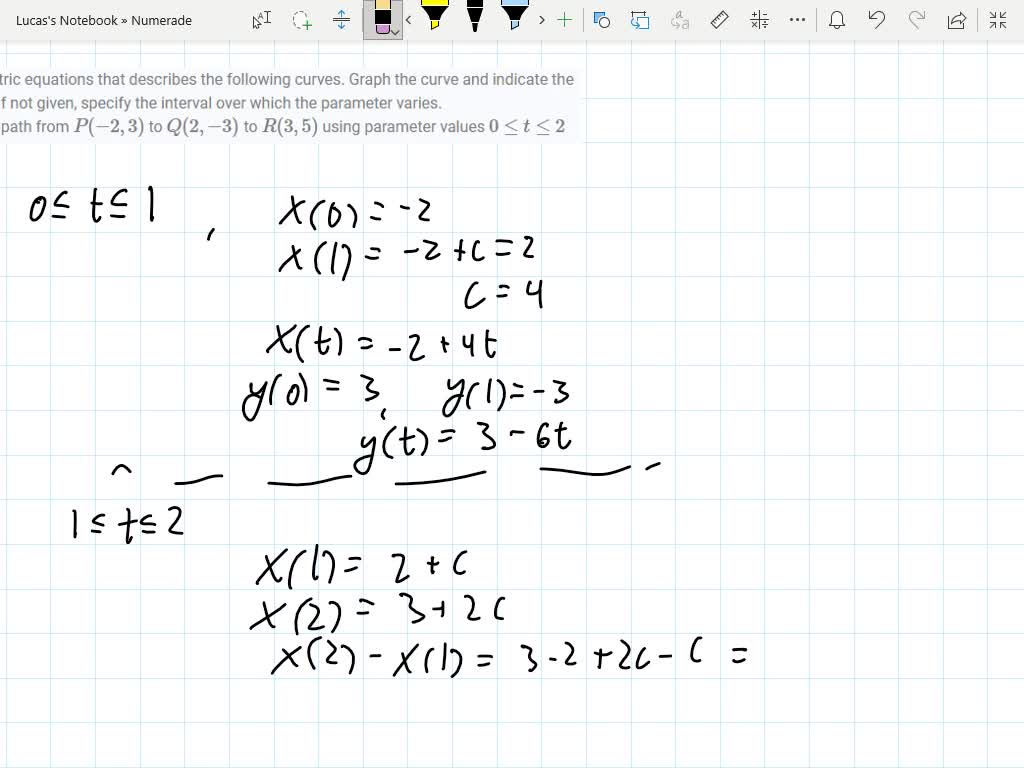 Lucas's Notebook » Numerade
tric equations that describes the following curves. Graph the curve and indicate the
f not given, specify the interval over which the parameter varies.
path from P(−2, 3) to Q(2, −3) to R(3, 5) using parameter values 0 ≤ t ≤ 2
0 ≤ t ≤ 1 , x(0) = -2
x(1) = -2 + c = 2
c = 4
x(t) = -2 + 4t
y(0) = 3, y(1) = -3
y(t) = 3 - 6t
1 ≤ t ≤ 2
x(1) = 2 + c
x(2) = 3 + 2c
x(2) - x(1) = 3 - 2 + 2c - c =